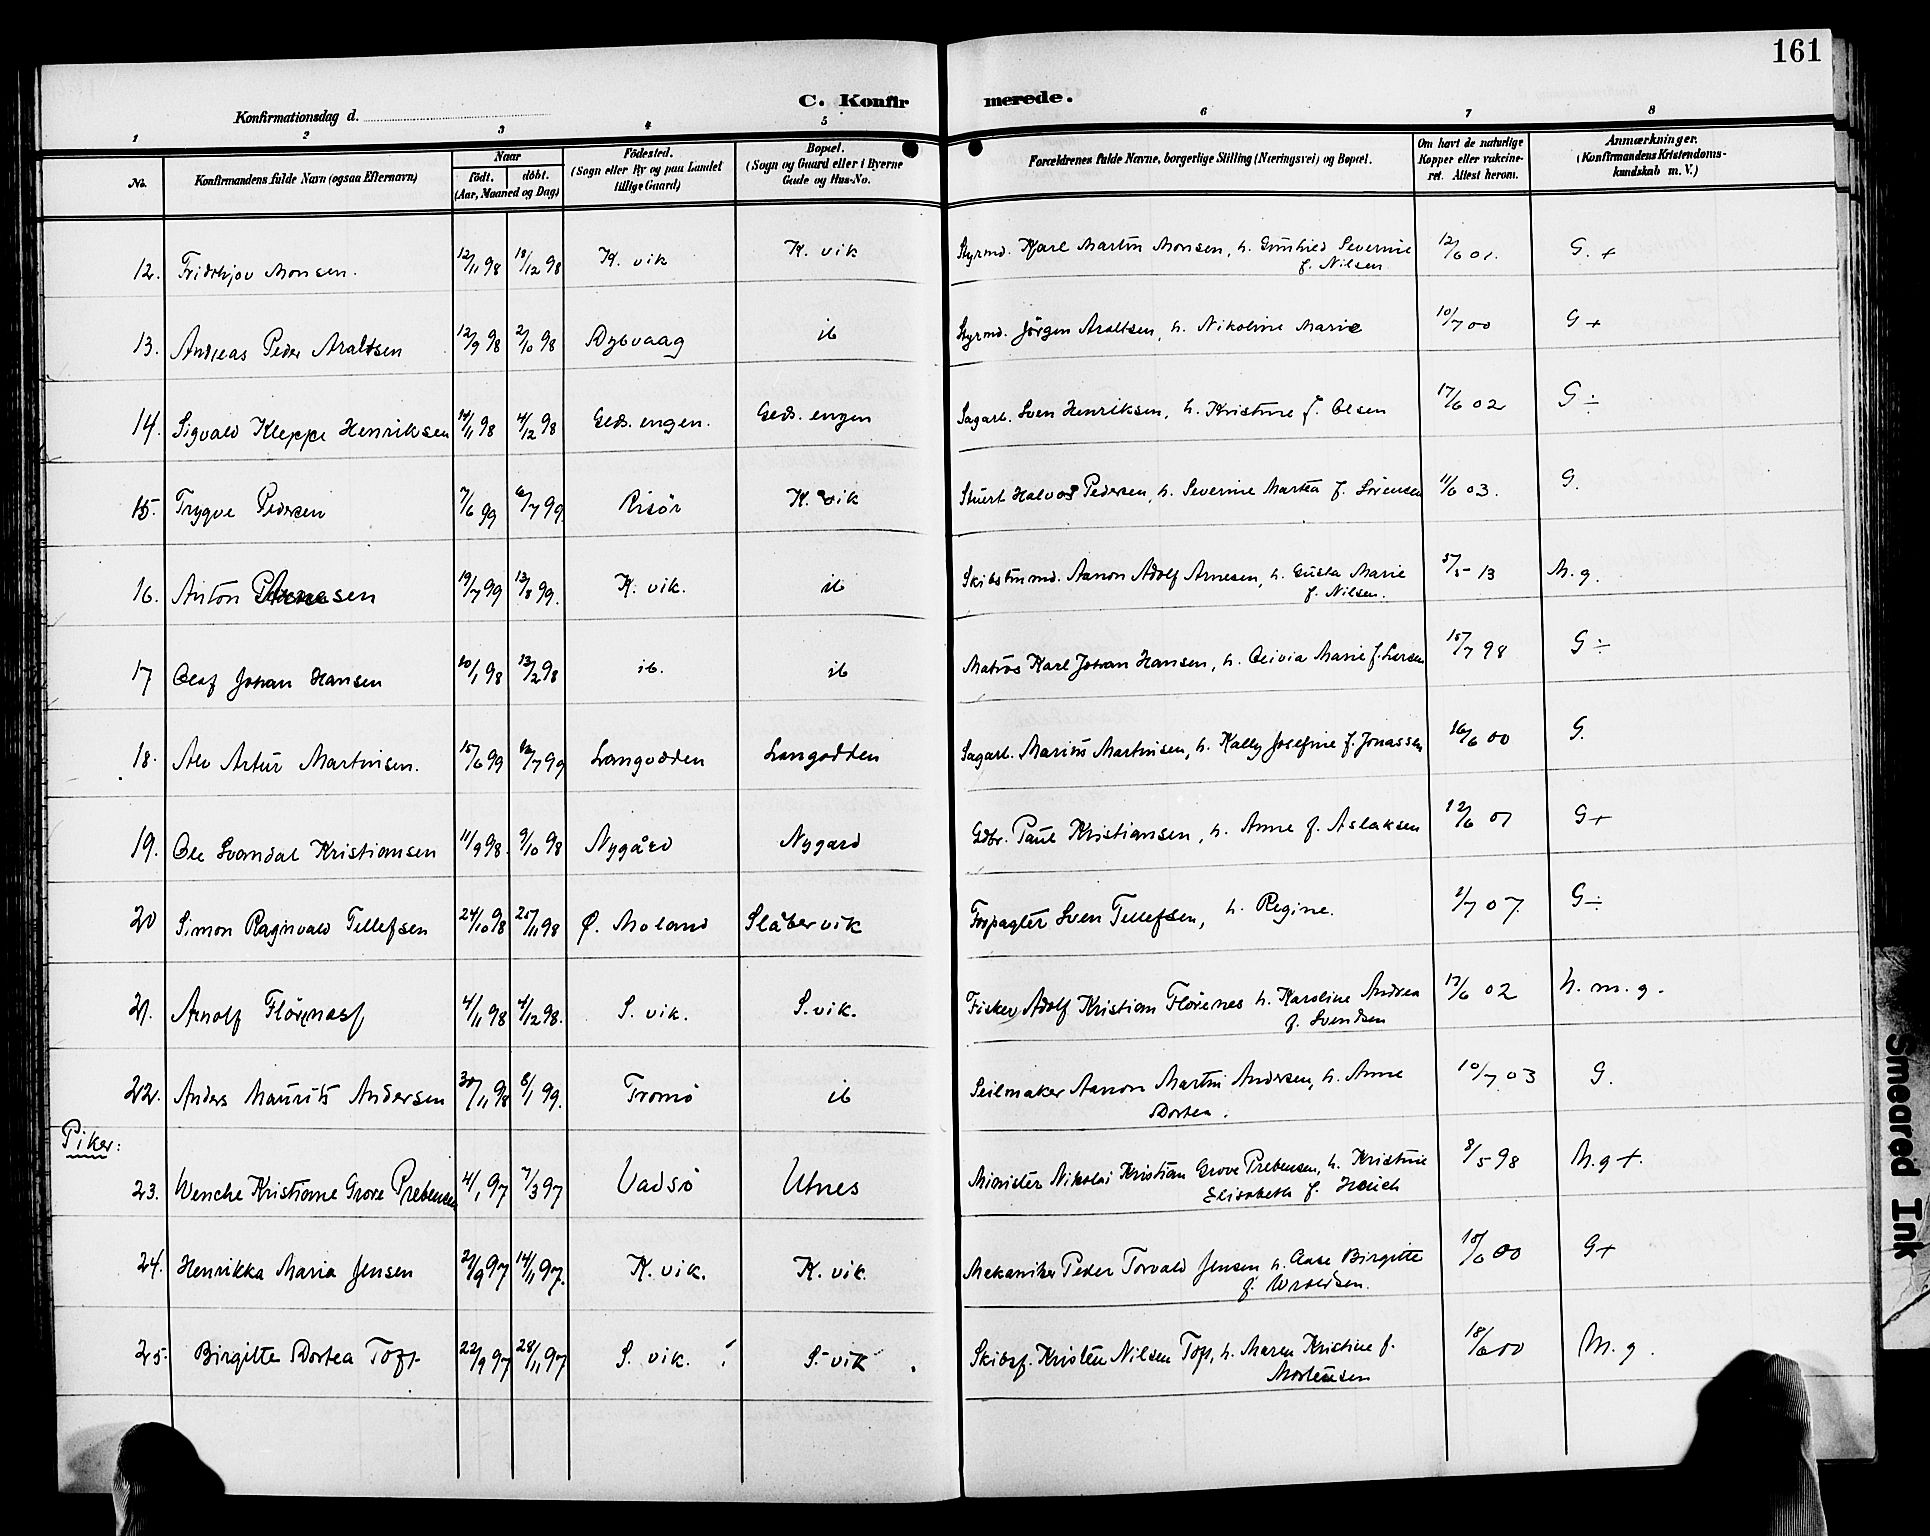 161
C. Konfirmerede.
Konfirmationsdag d.
1 2 3 4 5 6 7 8
No. Konfirmandens fulde Navn (ogsaa Efternavn) Naar födt. döbt. (Aar, Maaned og Dag) Födested. (Sogn eller By og paa Landet tillige Gaard) Bopæl. (Sogn og Gaard eller i Byerne Gade og Hus-No. Forældrenes fulde Navne, borgerlige Stilling (Næringsvei) og Bopæl. Om havt de naturlige Kopper eller vakcineret. Attest herom. Anmærkninger. (Konfirmandens Kristendomskundskab m. V.)
12. Fridthjov Monsen. 12/11 98 18/12 98 K. vik K. vik Styrmd. Karl Martin Monsen, h. Severine 12/6 01. G. +
f. Nilsen
13. Andreas Peder Araltsen 12/9 98 2/10 98 Dybvaag ib Styrmd. Jörgen Araltsen, h. Nikoline Marie 10/7 00 G +
14. Sigvald Kleppe Henriksen 14/11 98 4/12 98 Geds. engen. Geds. engen Sagarb. Sven Henriksen, h. Kristine f. Olsen 17/6 02 G ÷
15. Trygve Pedersen 7/6 99 6/7 99 Risör K. vik Stuert Halvor Pedersen, h. Severine Martea f. Sörensen 11/6 03. G.
16. Anton Arnesen 19/7 99 13/8 99. K. vik. ib Skibstmmd. Aanon Adolf Arnesen, h. Gusta Marie 5/5 13 M. g.
f. Nilsen.
17 Olaf Johan Hansen 10/1 98 13/2 98 ib. ib Matros Karl Johan Hansen, h. Olivia Marie f. Larsen 15/7 98 G ÷
18. Alv Artur Martinsen. 15/6 99 /7 99 Langodden Langodden Sagarb. Marius Martinsen, h. Kally Josefine f. Jonassen 16/6 00 G.
19. Ole Svandal Kristiansen 11/9 98. 9/10 98 Nygård Nygard Gdbr. Paul Kristiansen, h. Anne f. Aslaksen 12/6 01 G +
20 Simon Ragnvald Tellefsen 24/10 98 25/11 98 Ø. Moland Slåbervik Forpagter Sven Tellefsen, h. Regine. 2/7 07. G ÷
21. Arnolf Flörenæs 4/11 98 4/12 98. S. vik. S. vik. Fisker Adolf Kristian Flörenes h. Karoline Andrea 17/6 02 h. m. g.
f. Svendsen
22. Anders Maurits Andersen 30/11 98 8/1 99. Tromö ib Seilmaker Aanon Martin Andersen, h. Anne 10/7 03 G.
Dortea.
Piker:
23. Wenche Kristiane Grove Prebensen 4/1 97 7/3 97 Vadsö Utnes Minister Nikolai Kristian Grove Prebensen, h. Kristine 8/5 98 M. g +.
Elisabeth f. Hauch
24. Henrikka Maria Jensen 20/9 97 14/11 97. K. vik. K. vik. Mekaniker Peder Torvald Jensen h. Aase Birgitte 18/6 00 G +
f.
25. Birgitte Dortea Toft 22/9 97 28/11 97 S. vik. S. vik. Skibsf. Kristen Nilsen Toft, h. Maren Kristine f. 18/6 00 M. g.
Mortensen
Smeared Ink